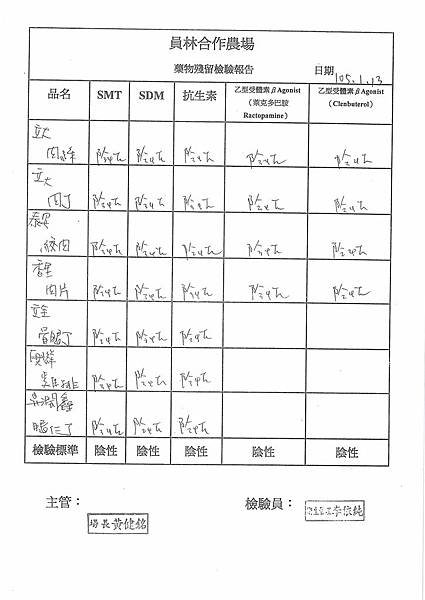 員林合作農場
藥物殘留檢驗報告
日期 105.1.13
品名 SMT SDM 抗生素 乙型受體素βAgonist (萊克多巴胺 Ractopamine) 乙型受體素βAgonist (Clenbuterol)
立大
肉 陰性 陰性 陰性 陰性 陰性
立大
肉丁 陰性 陰性 陰性 陰性 陰性
泰安
絞肉 陰性 陰性 陰性 陰性 陰性
香里
肉片 陰性 陰性 陰性 陰性 陰性
陰性 陰性 陰性
雞排 陰性 陰性 陰性
陰性 陰性 陰性
檢驗標準 陰性 陰性 陰性 陰性 陰性
主管： 檢驗員：
場長黃健銘